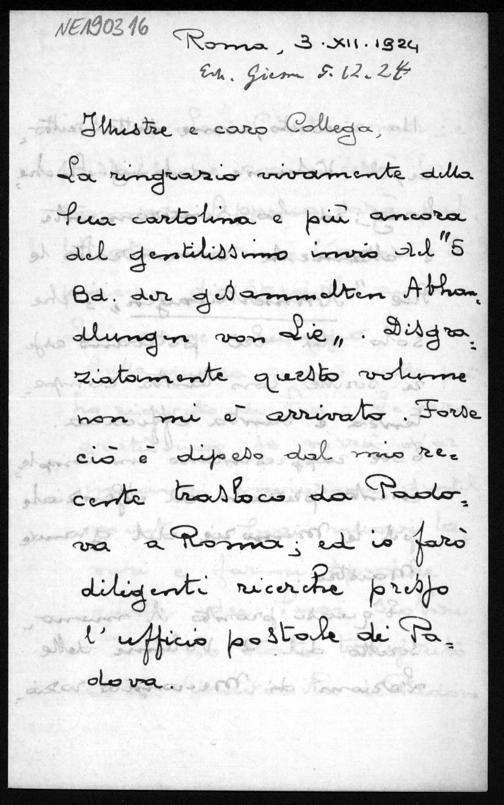 NE190316
Roma, 3.XII.1924
Erh. Giessen 5.12.24
Illustre e caro Collega,
La ringrazio vivamente della
Sua cartolina e più ancora
del gentilissimo invio del "5
Bd. der gesammelten Abhan-
dlungen von Lie„. Disgra-
ziatamente questo volume
non mi è arrivato Forse
ciò è dipeso dal mio re-
cente trasloco da Pado-
va a Roma; ed io farò
diligenti ricerche presso
l'ufficio postale di Pa-
dova.